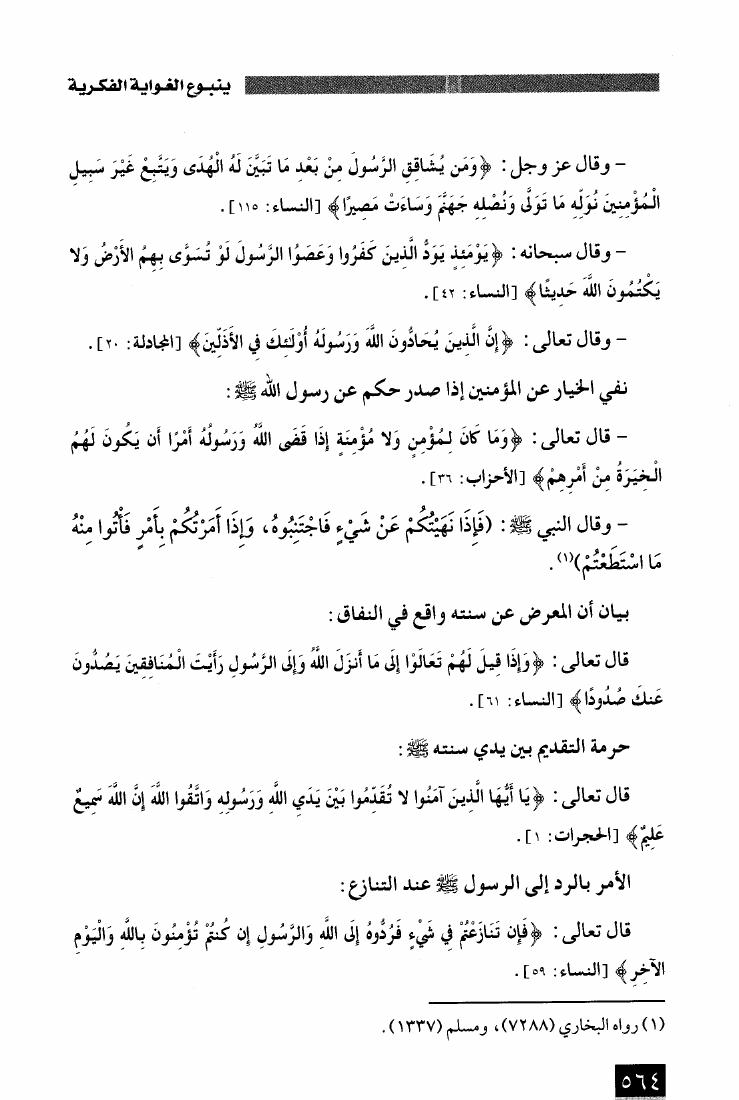 ينبوع الغواية الفكرية
– وقال عز وجل: ﴿وَمَن يُشَاقِقِ الرَّسُولَ مِنْ بَعْدِ مَا تَبَيَّنَ لَهُ الْهُدَى وَيَتَّبِعْ غَيْرَ سَبِيلِ
الْمُؤْمِنِينَ نُوَلِّهِ مَا تَوَلَّى وَنُصْلِهِ جَهَنَّمَ وَسَاءَتْ مَصِيرًا﴾ [النساء: ١١٥].
– وقال سبحانه: ﴿يَوْمَئِذٍ يَوَدُّ الَّذِينَ كَفَرُوا وَعَصَوُا الرَّسُولَ لَوْ تُسَوَّى بِهِمُ الأَرْضُ وَلا
يَكْتُمُونَ اللَّهَ حَدِيثًا﴾ [النساء: ٤٢].
– وقال تعالى: ﴿إِنَّ الَّذِينَ يُحَادُّونَ اللَّهَ وَرَسُولَهُ أُوْلَئِكَ فِي الأَذَلِّينَ﴾ [المجادلة: ٢٠].
نفي الخيار عن المؤمنين إذا صدر حكم عن رسول الله ﷺ:
– قال تعالى: ﴿وَمَا كَانَ لِمُؤْمِنٍ وَلا مُؤْمِنَةٍ إِذَا قَضَى اللَّهُ وَرَسُولُهُ أَمْرًا أَن يَكُونَ لَهُمُ
الْخِيَرَةُ مِنْ أَمْرِهِمْ﴾ [الأحزاب: ٣٦].
– وقال النبي ﷺ: (فَإِذَا نَهَيْتُكُمْ عَنْ شَيْءٍ فَاجْتَنِبُوهُ، وَإِذَا أَمَرْتُكُمْ بِأَمْرٍ فَأْتُوا مِنْهُ
مَا اسْتَطَعْتُمْ)(١).
بيان أن المعرض عن سنته واقع في النفاق:
قال تعالى: ﴿وَإِذَا قِيلَ لَهُمْ تَعَالَوْا إِلَى مَا أَنزَلَ اللَّهُ وَإِلَى الرَّسُولِ رَأَيْتَ الْمُنَافِقِينَ يَصُدُّونَ
عَنكَ صُدُودًا﴾ [النساء: ٦١].
حرمة التقديم بين يدي سنته ﷺ:
قال تعالى: ﴿يَا أَيُّهَا الَّذِينَ آمَنُوا لا تُقَدِّمُوا بَيْنَ يَدَيِ اللَّهِ وَرَسُولِهِ وَاتَّقُوا اللَّهَ إِنَّ اللَّهَ سَمِيعٌ
عَلِيمٌ﴾ [الحجرات: ١].
الأمر بالرد إلى الرسول ﷺ عند التنازع:
قال تعالى: ﴿فَإِن تَنَازَعْتُمْ فِي شَيْءٍ فَرُدُّوهُ إِلَى اللَّهِ وَالرَّسُولِ إِن كُنتُمْ تُؤْمِنُونَ بِاللَّهِ وَالْيَوْمِ
الآخِرِ﴾ [النساء: ٥٩].
(١) رواه البخاري (٧٢٨٨)، ومسلم (١٣٣٧).
٥٦٤